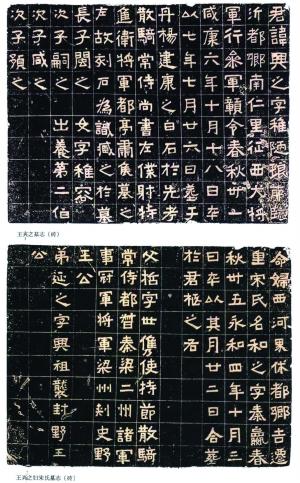 君諱興之字稚陋琅耶臨
沂都鄉南仁里征西大將
軍行參軍贛令春秋卅一
咸康六年十月十八日卒
以七年七月廿六日葬于
丹楊建康之白石於先考
散騎常侍尚書左僕射特
進衛將軍都亭肅侯墓之
左故刻石為識臧之於墓
長子閩之 女字稚容
次子嗣之 出養第二伯
次子咸之
次子預之
王兴之墓志（砖）
命婦西河界休都鄉吉遷
里宋氏名和之字秦嬴春
秋卅五永和四年十月三
日卒以其月廿二日合葬
於君柩之右
父哲字世儁使持節散騎
常侍都督秦梁二州諸軍
事冠軍將軍梁州刺史野
王公
弟延之字興祖襲封野王
公
王兴之妇宋氏墓志（砖）